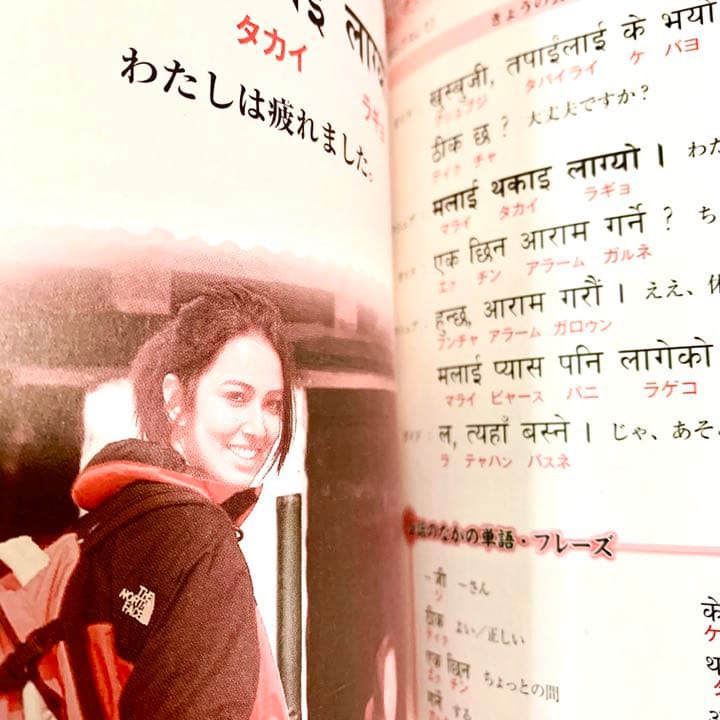 タカイ
ラギョ
わたしは疲れました。
THE NORTH FACE
खुस्बुजी, तपाईलाई के भयो
タパイライ ケ バヨ
ठीक छ ? 大丈夫ですか?
テイク チャ
मलाई थकाइ लाग्यो । わた
マライ タカイ ラギョ
एक छिन आराम गर्ने ? ち
エク チン アラーム ガルネ
हुन्छ, आराम गरौं । ええ、休
フンチャ アラーム ガロウン
मलाई प्यास पनि लागेको
マライ ピャース パニ ラゲコ
ल, त्यहाँ बस्ने । じゃ、あそ
ラ テャハン バスネ
のなかの単語・フレーズ
–जी –さん
ジ
ठीक よい/正しい
テイク
एक छिन ちょっとの間
エク チン
गर्ने する
के
ケ
थ